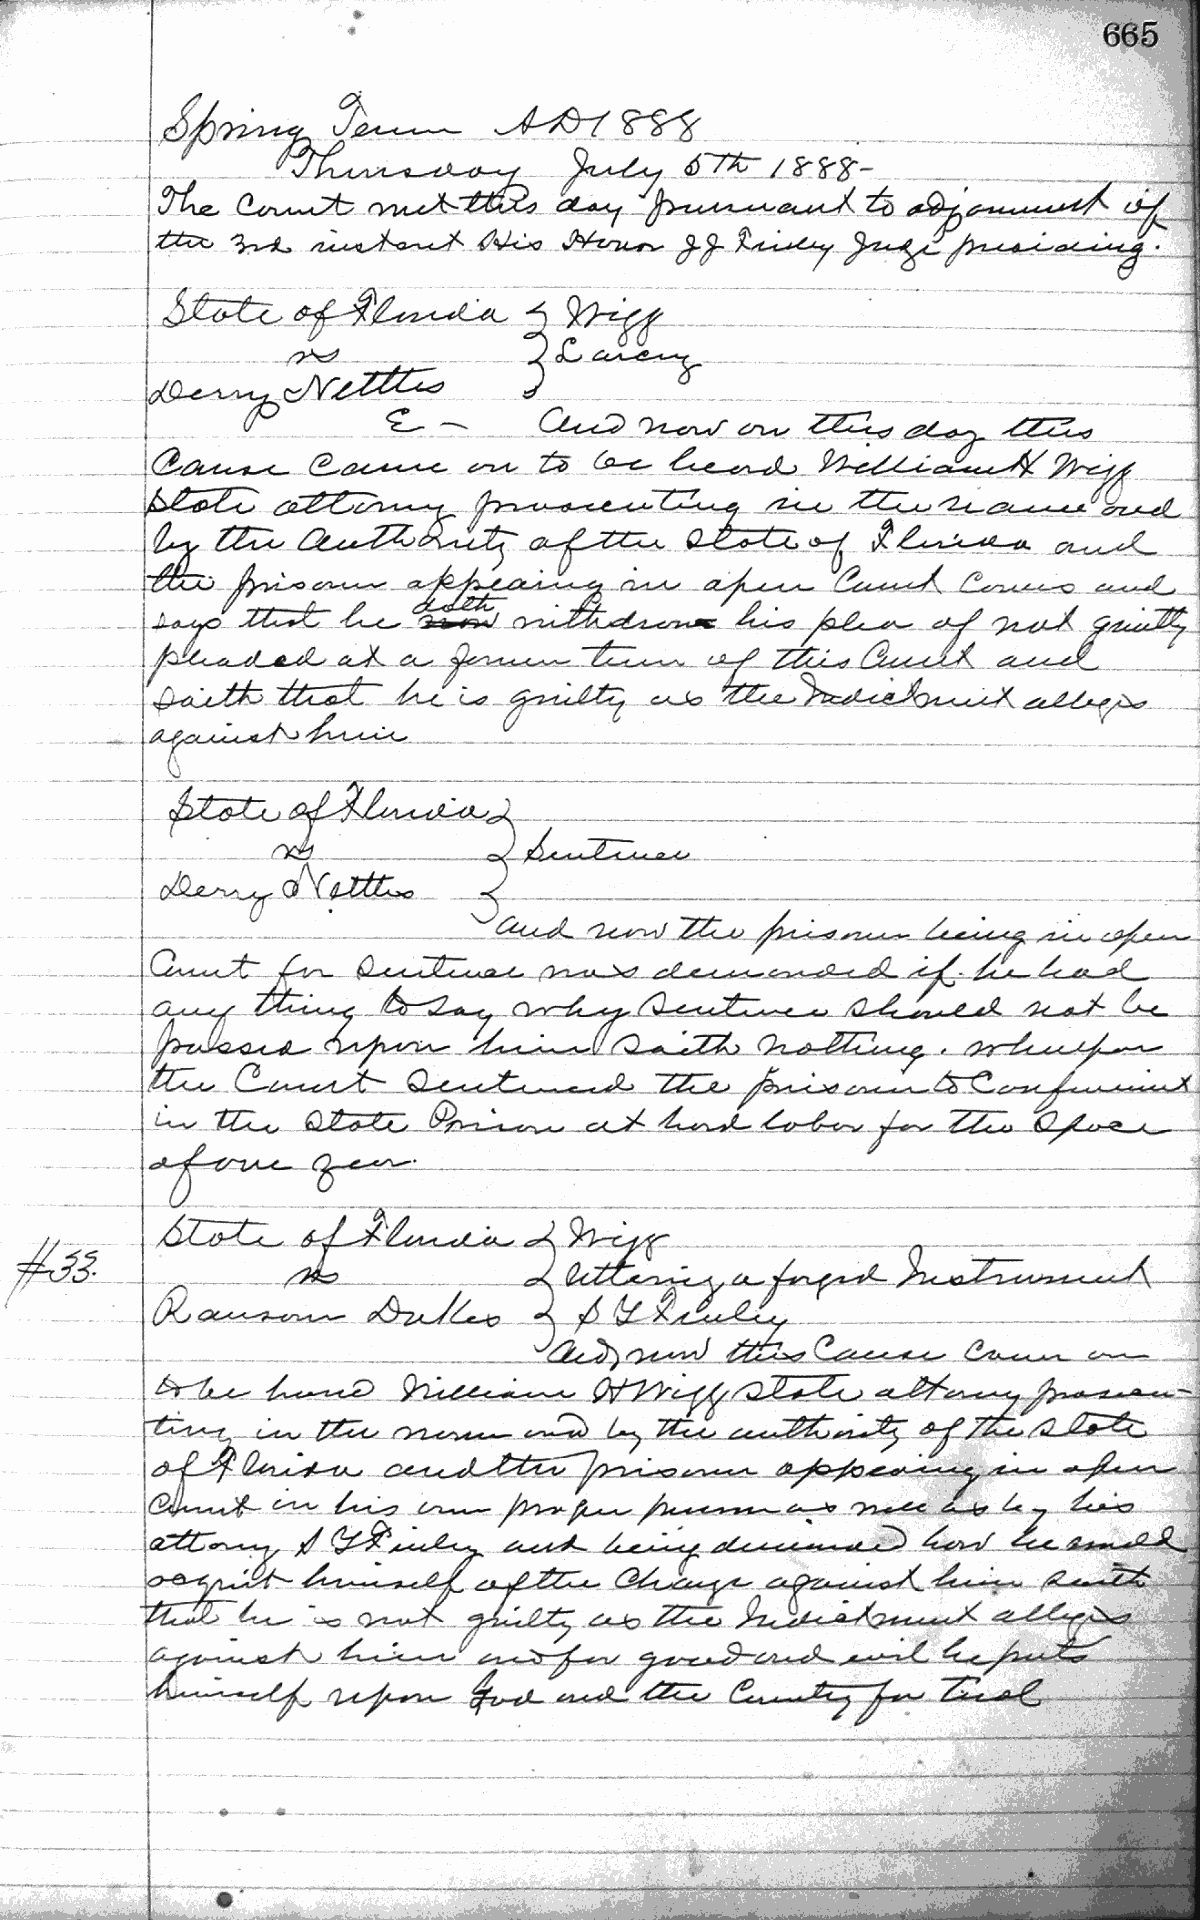 665
Spring Term AD 1888
Thursday July 5th 1888-
The Court met this day pursuant to adjournment of
the 3rd instant His Honor J J Finley Judge presiding.
State of Florida } Wigg
vs } Larceny
Derry Nettles }
E - And now on this day this
Cause Came on to be heard William H Wigg
State attorny prosecuting in the name and
by the Authority of the State of Florida and
the prisoner appearing in open Court Comes and
doth
says that he now withdraw his plea of not guilty
pleaded at a former term of this Court and
saith that he is guilty as the Indictment alleges
against him
State of Florida }
vs } Sentence
Derry Nettles }
and now the prisoner being in open
Court for Sentence was demanded if he had
any thing to say why Sentence should not be
passed upon him Saith Nothing. whereupon
the Court Sentenced the prisoner to Confinement
in the State Prison at hard labor for the Space
of one year.
State of Florida } Wigg
#33. vs } Uttering a forged Instrument
Ransom Dukes } S Y Finley
And now this Cause Came on
to be heard William H Wigg State attorny prosecu-
ting in the name and by the authority of the State
of Florida and the prisoner appearing in open
Court in his own proper person as well as by his
attorny S Y Finley and being demanded how he would
acquit himself of the Charge against him saith
that he is not guilty as the Indictment alleges
against him and for good and evil he puts
himself upon God and the Country for trial